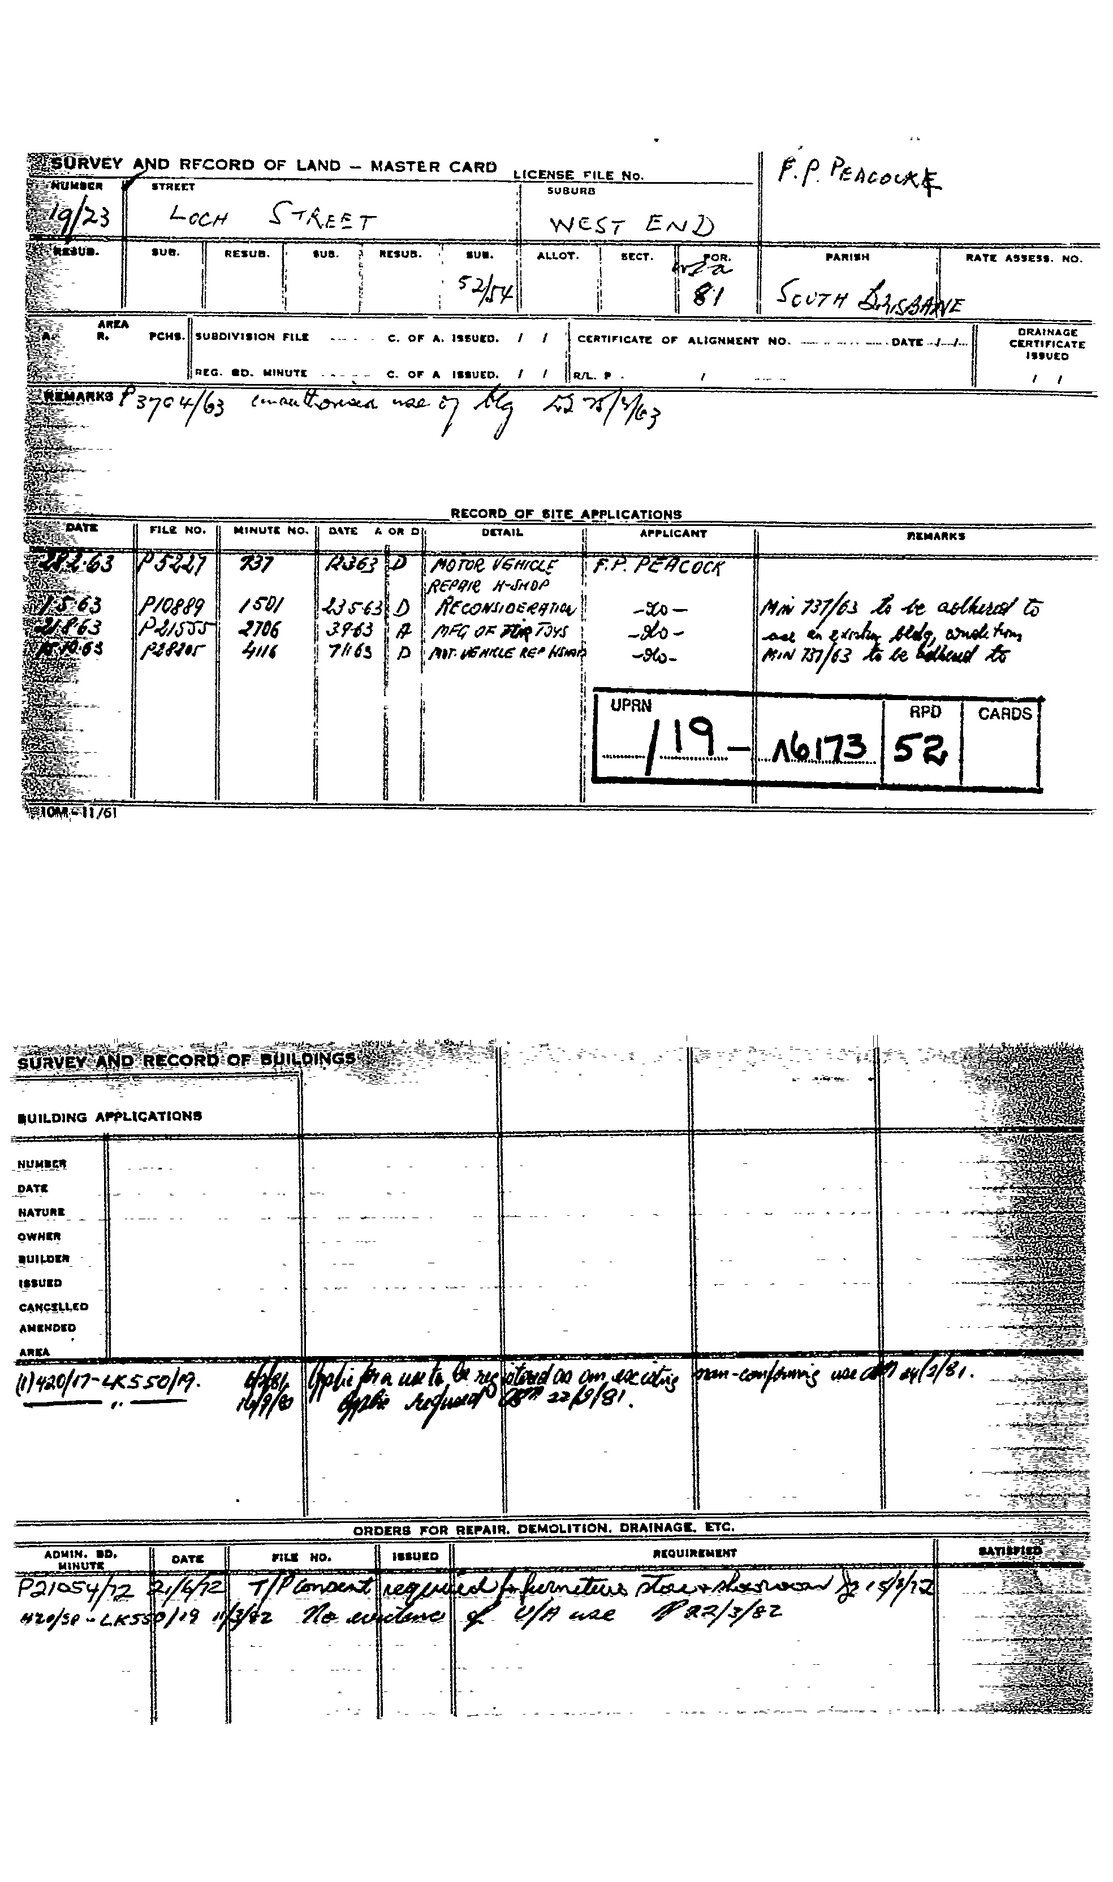 SURVEY AND RECORD OF LAND – MASTER CARD LICENSE FILE No. F.P. PEACOCKE
NUMBER STREET SUBURB
19/23 LOCH STREET WEST END
RESUB. SUB. RESUB. SUB. RESUB. SUB. ALLOT. SECT. POR. PARISH RATE ASSESS. NO.
52/54 81 SOUTH BRISBANE
A. AREA R. PCHS. SUBDIVISION FILE C. OF A. ISSUED. / / CERTIFICATE OF ALIGNMENT NO. DATE / / DRAINAGE CERTIFICATE ISSUED
REG. BD. MINUTE C. OF A ISSUED. / / R/L. P. / / /
REMARKS P3704/63 unauthorised use of bldg
RECORD OF SITE APPLICATIONS
DATE FILE NO. MINUTE NO. DATE A OR D DETAIL APPLICANT REMARKS
28.2.63 P5227 737 12363 D MOTOR VEHICLE F.P. PEACOCK
REPAIR W-SHOP
1.5.63 P10889 1501 23563 D RECONSIDERATION –do– MIN 737/63 to be adhered to
21.8.63 P21555 2706 3963 A MFG OF TOYS –do– use an existing bldg, conditions
15.10.63 4116 71163 D MOT. VEHICLE REP WSHOP –do– MIN 737/63 to be adhered to
UPRN RPD CARDS
/19 – 16173 52
10M – 11/61
SURVEY AND RECORD OF BUILDINGS
BUILDING APPLICATIONS
NUMBER
DATE
NATURE
OWNER
BUILDER
ISSUED
CANCELLED
AMENDED
AREA
(1)420/17-LK550/19. 6/2/81 Applic for a use to be registered as an existing non-conforming use 24/2/81.
" 16/9/81 Applic refused 22/9/81.
ORDERS FOR REPAIR, DEMOLITION, DRAINAGE, ETC.
ADMIN. BD. MINUTE DATE FILE NO. ISSUED REQUIREMENT SATISFIED
P21054/72 21/6/72 T/P consent required for furniture store & showroom 15/8/72
420/50-LK550/19 11/3/82 No evidence of U/A use 22/3/82